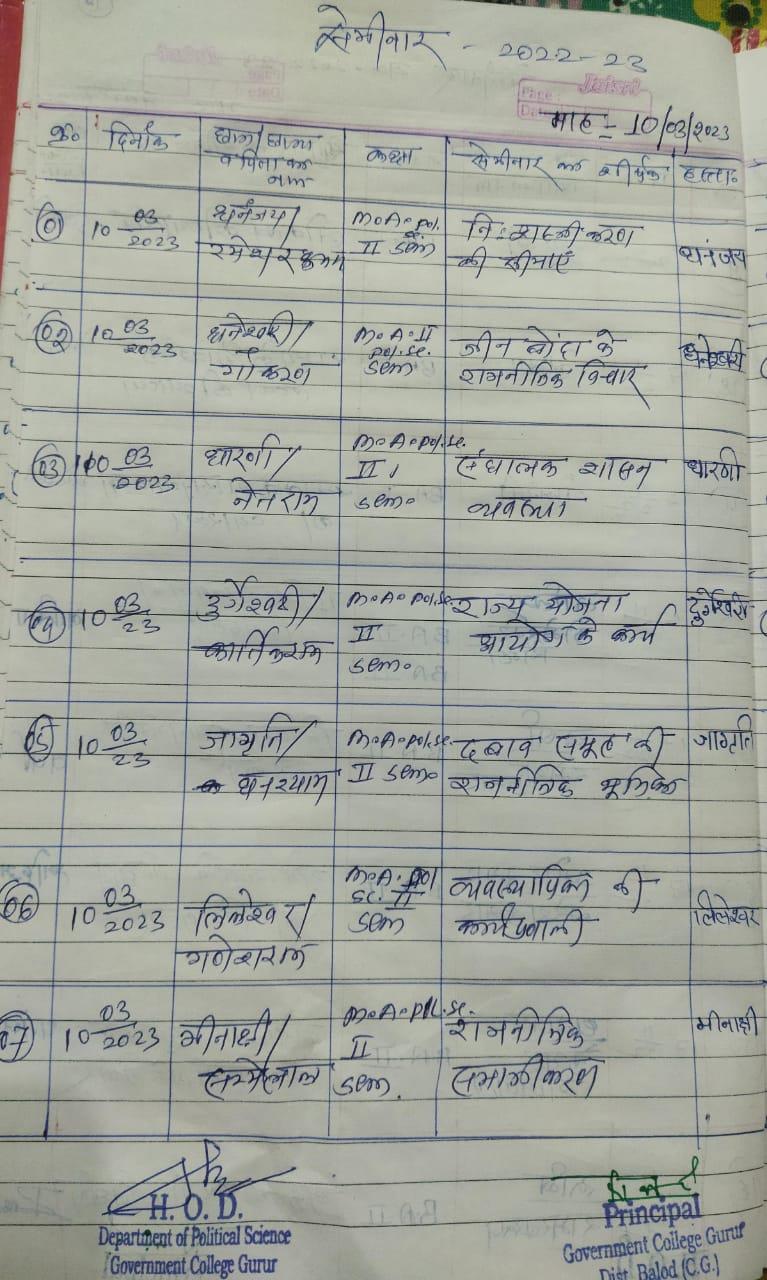 सेमीनार - 2022-23
Page:
माह - 10/03/2023
क्र० दिनाँक छात्र/छात्रा व पिता का नाम कक्षा सेमीनार का शीर्षक हस्ता.
01 10 03/2023 धनंजय/ M.A. pol. नि:शस्त्रीकरण
रमेश कुमार II sem की सीमाएं धनंजय
02 10 03/2023 धनेश्वरी/ M.A. II जीन बोंदा के धनेश्वरी
गौकरण pol. sc. sem राजनीतिक विचार
03 10 03/2023 धारणी/ M.A. pol. sc. संघात्मक शासन धारणी
नेतराम II sem. व्यवस्था
04 10 03/23 दुर्गेश्वरी/ M.A. pol. sc. राज्य योजना दुर्गेश्वरी
कार्तिकराम II sem. आयोग के कार्य
05 10 03/23 जागृति/ M.A. pol. sc. दबाव समूह की जागृति
घनश्याम II sem. राजनीतिक भूमिका
06 10 03/2023 लिलेश्वर/ M.A. pol sc. II व्यवस्थापिका की लिलेश्वर
गणेशराम sem कार्यप्रणाली
07 10 03/2023 मीनाक्षी/ M.A. pol. sc. राजनीतिक मीनाक्षी
II sem. समाजीकरण
H. O. D.
Department of Political Science
Government College Gurur
Principal
Government College Gurur
Dist. Balod (C.G.)